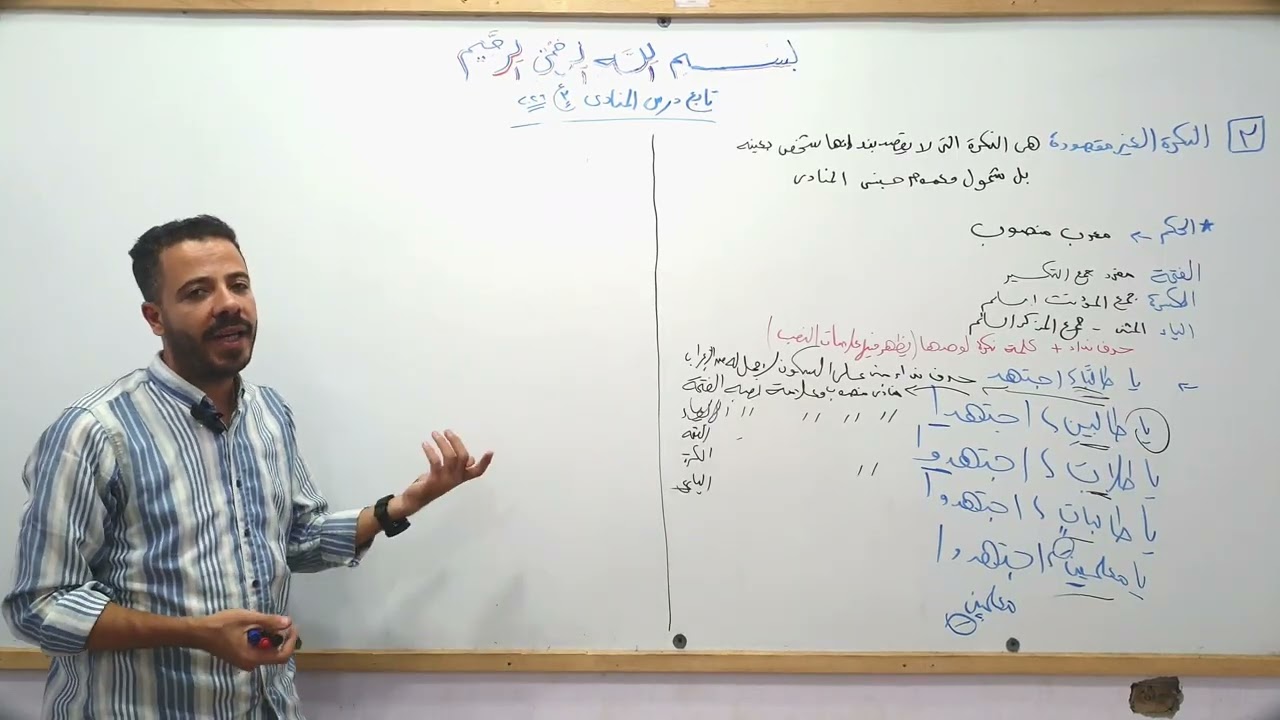 بسم الله الرحمن الرحيم
تابع درس المنادى
٢ النكرة الغير مقصودة هى النكرة التى لا يقصد بندائها شخص بعينه
بل شمول وعموم جنس المنادى
* الحكم ← معرب منصوب
الفتحة مفرد جمع التكسير
الكسرة جمع المؤنث السالم
الياء المثنى - جمع المذكر السالم
حرف نداء + كلمة نكرة لوصفها (يظهر فيها علامات النصب)
← يا طالبًا، اجتهد حرف نداء مبنى على السكون لا محل له من الإعراب
منادى منصوب وعلامة نصبه الفتحة
يا طالبين، اجتهدا " " " " الياء
يا طلابًا، اجتهدوا
يا طالباتٍ، اجتهدوا "
يا معلمين اجتهدوا
معلمين